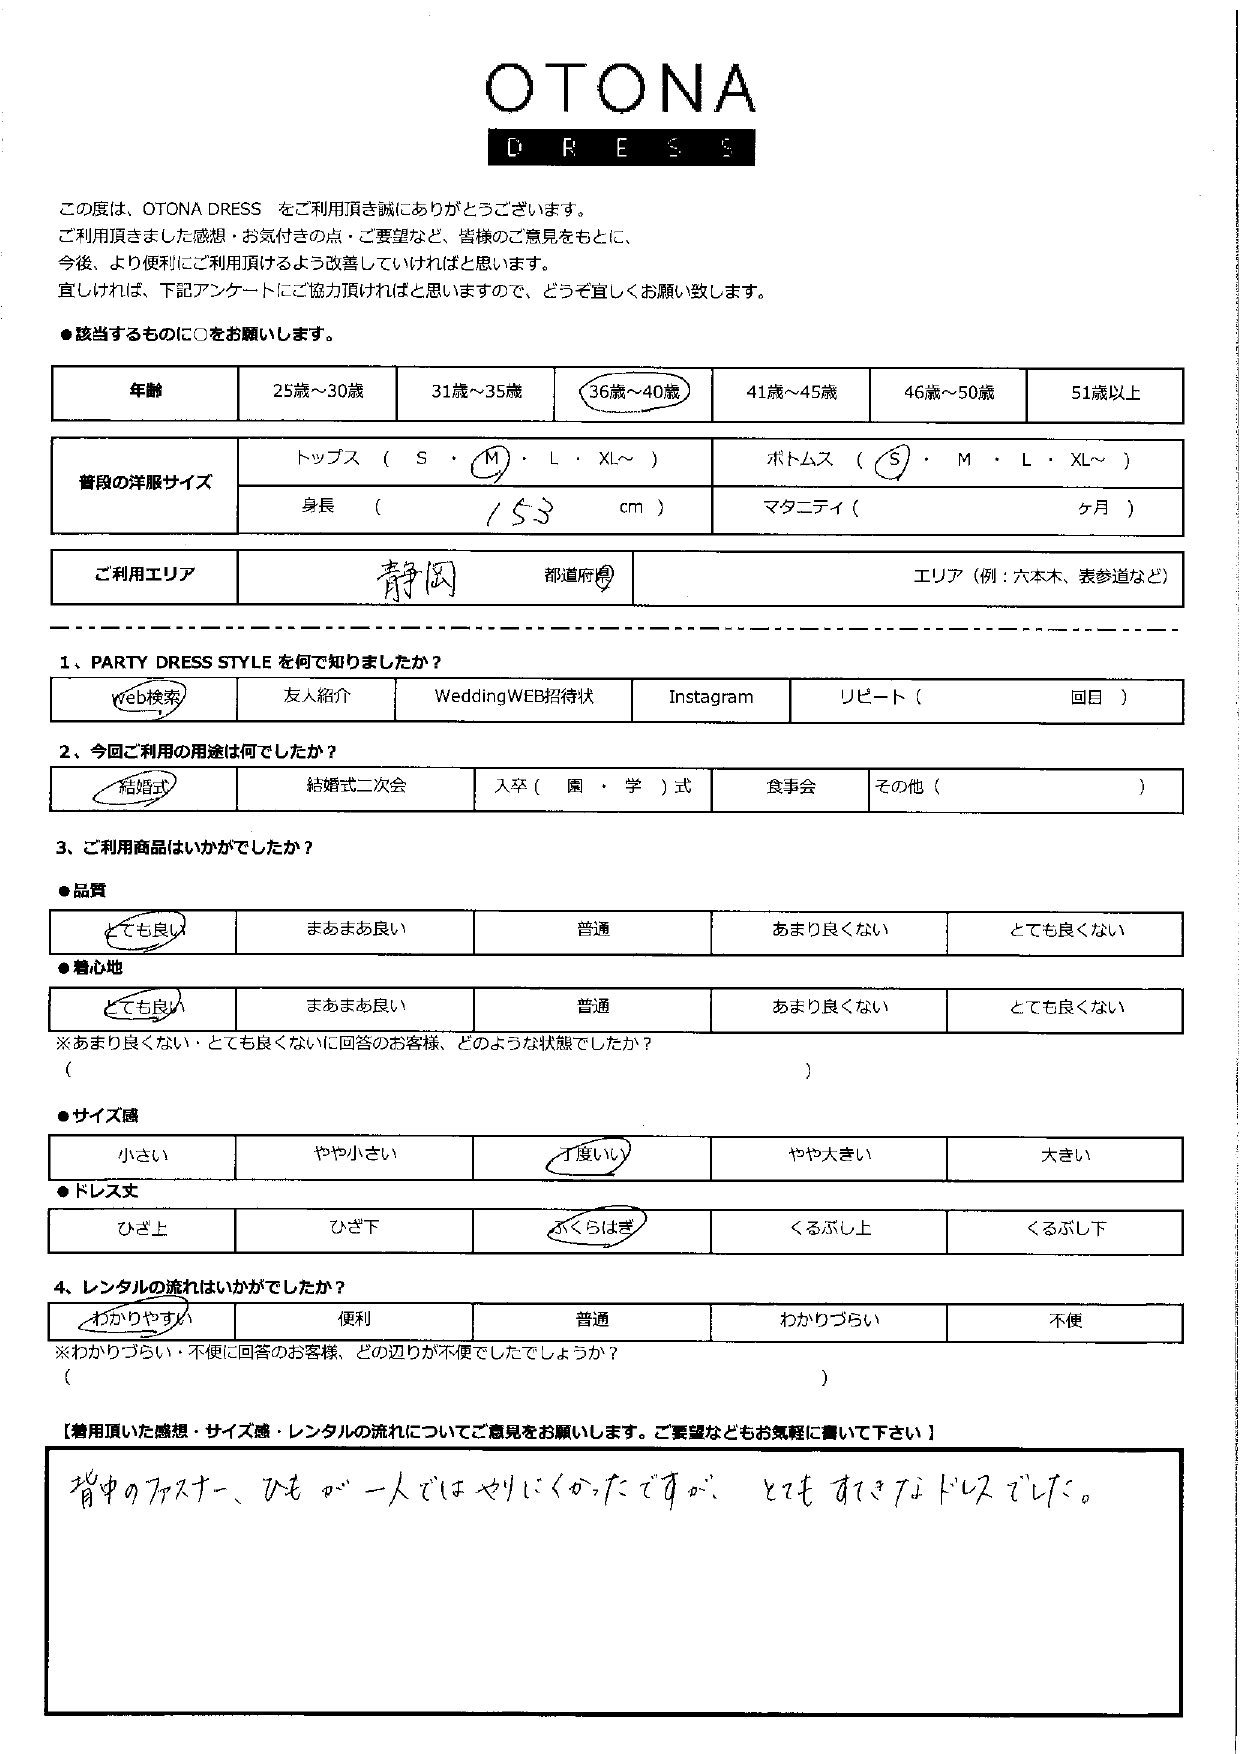 OTONA
DRESS
この度は、OTONA DRESS　をご利用頂き誠にありがとうございます。
ご利用頂きました感想・お気付きの点・ご要望など、皆様のご意見をもとに、
今後、より便利にご利用頂けるよう改善していければと思います。
宜しければ、下記アンケートにご協力頂ければと思いますので、どうぞ宜しくお願い致します。
●該当するものに○をお願いします。
年齢 25歳～30歳 31歳～35歳 36歳～40歳 41歳～45歳 46歳～50歳 51歳以上
普段の洋服サイズ
トップス （ S ・ M ・ L ・ XL～ ） ボトムス （ S ・ M ・ L ・ XL～ ）
身長 （ 153 cm ） マタニティ（ ヶ月 ）
ご利用エリア 静岡 都道府県 エリア（例：六本木、表参道など）
1、PARTY DRESS STYLE を何で知りましたか？
Web検索 友人紹介 WeddingWEB招待状 Instagram リピート（ 回目 ）
2、今回ご利用の用途は何でしたか？
結婚式 結婚式二次会 入卒（ 園 ・ 学 ）式 食事会 その他（ ）
3、ご利用商品はいかがでしたか？
●品質
とても良い まあまあ良い 普通 あまり良くない とても良くない
●着心地
とても良い まあまあ良い 普通 あまり良くない とても良くない
※あまり良くない・とても良くないに回答のお客様、どのような状態でしたか？
（ ）
●サイズ感
小さい やや小さい 丁度いい やや大きい 大きい
●ドレス丈
ひざ上 ひざ下 ふくらはぎ くるぶし上 くるぶし下
4、レンタルの流れはいかがでしたか？
わかりやすい 便利 普通 わかりづらい 不便
※わかりづらい・不便に回答のお客様、どの辺りが不便でしたでしょうか？
（ ）
【着用頂いた感想・サイズ感・レンタルの流れについてご意見をお願いします。ご要望などもお気軽に書いて下さい 】
背中のファスナー、ひもが一人ではやりにくかったですが、とてもすてきなドレスでした。